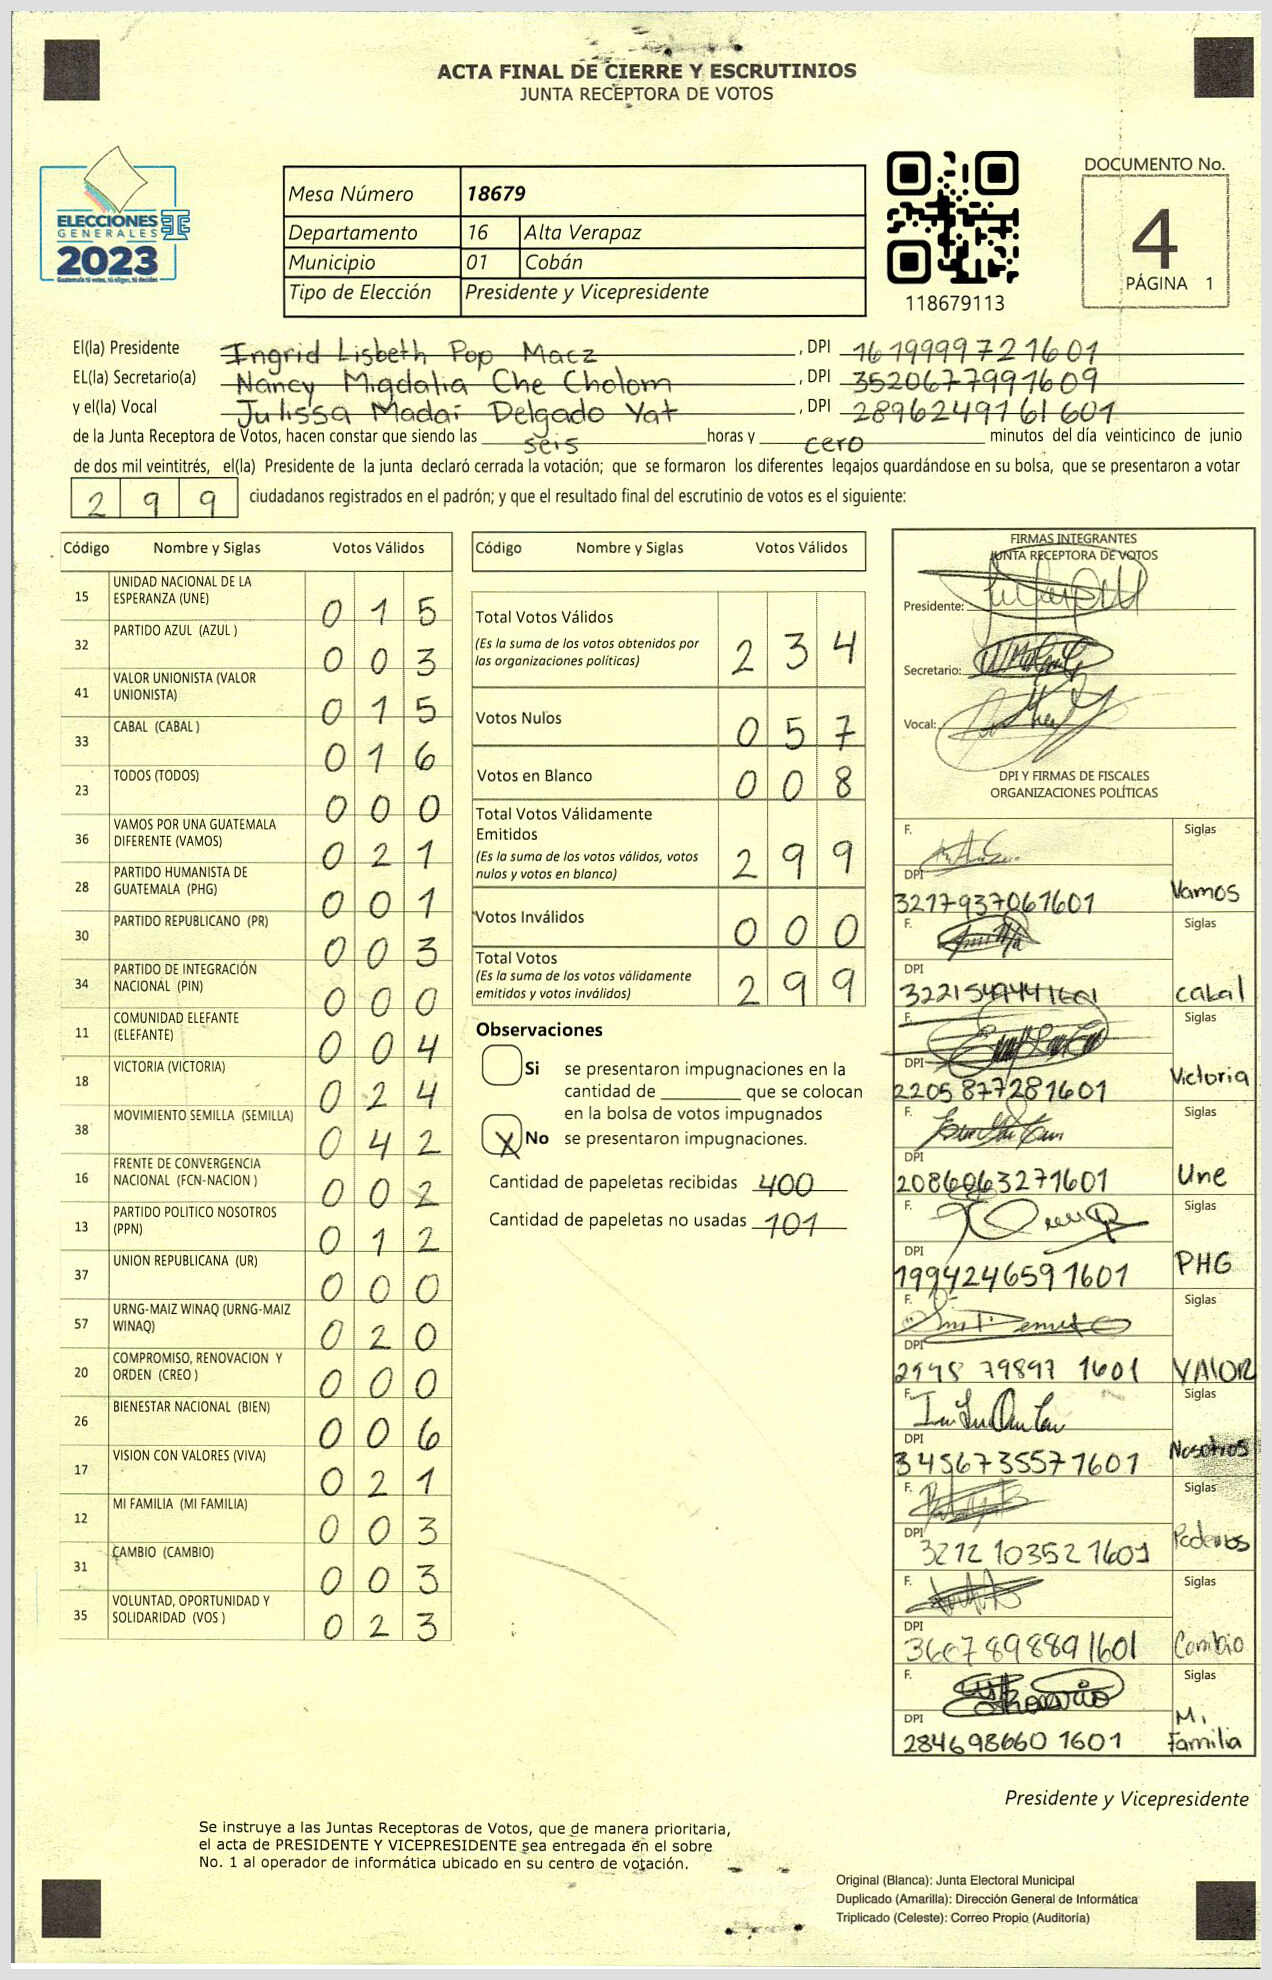 ACTA FINAL DE CIERRE Y ESCRUTINIOS
JUNTA RECEPTORA DE VOTOS
ELECCIONES
GENERALES
2023
Mesa Número 18679
Departamento 16 Alta Verapaz
Municipio 01 Cobán
Tipo de Elección Presidente y Vicepresidente
118679113
DOCUMENTO No.
4
PÁGINA 1
El(la) Presidente Ingrid Lisbeth Pop Macz, DPI 1619999721601
EL(la) Secretario(a) Nancy Migdalia Che Cholom, DPI 3520677991609
y el(la) Vocal Julissa Madai Delgado Yat, DPI 2896249161601
de la Junta Receptora de Votos, hacen constar que siendo las seis horas y cero minutos del día veinticinco de junio
de dos mil veintitrés, el(la) Presidente de la junta declaró cerrada la votación; que se formaron los diferentes legajos quardándose en su bolsa, que se presentaron a votar
299 ciudadanos registrados en el padrón; y que el resultado final del escrutinio de votos es el siguiente:
Código Nombre y Siglas Votos Válidos
15 UNIDAD NACIONAL DE LA ESPERANZA (UNE) 015
32 PARTIDO AZUL (AZUL ) 003
41 VALOR UNIONISTA (VALOR UNIONISTA) 015
33 CABAL (CABAL ) 016
23 TODOS (TODOS) 000
36 VAMOS POR UNA GUATEMALA DIFERENTE (VAMOS) 021
28 PARTIDO HUMANISTA DE GUATEMALA (PHG) 001
30 PARTIDO REPUBLICANO (PR) 003
34 PARTIDO DE INTEGRACIÓN NACIONAL (PIN) 000
11 COMUNIDAD ELEFANTE (ELEFANTE) 004
18 VICTORIA (VICTORIA) 024
38 MOVIMIENTO SEMILLA (SEMILLA) 042
16 FRENTE DE CONVERGENCIA NACIONAL (FCN-NACION ) 002
13 PARTIDO POLITICO NOSOTROS (PPN) 012
37 UNION REPUBLICANA (UR) 000
57 URNG-MAIZ WINAQ (URNG-MAIZ WINAQ) 020
20 COMPROMISO, RENOVACION Y ORDEN (CREO ) 000
26 BIENESTAR NACIONAL (BIEN) 006
17 VISION CON VALORES (VIVA) 021
12 MI FAMILIA (MI FAMILIA) 003
31 CAMBIO (CAMBIO) 003
35 VOLUNTAD, OPORTUNIDAD Y SOLIDARIDAD (VOS ) 023
Código Nombre y Siglas Votos Válidos
Total Votos Válidos 234
(Es la suma de los votos obtenidos por las organizaciones políticas)
Votos Nulos 057
Votos en Blanco 008
Total Votos Válidamente Emitidos 299
(Es la suma de los votos válidos, votos nulos y votos en blanco)
Votos Inválidos 000
Total Votos 299
(Es la suma de los votos válidamente emitidos y votos inválidos)
Observaciones
Si se presentaron impugnaciones en la
cantidad de ________ que se colocan
en la bolsa de votos impugnados
X No se presentaron impugnaciones.
Cantidad de papeletas recibidas 400
Cantidad de papeletas no usadas 101
FIRMAS INTEGRANTES
JUNTA RECEPTORA DE VOTOS
Presidente:
Secretario:
Vocal:
DPI Y FIRMAS DE FISCALES
ORGANIZACIONES POLÍTICAS
F. Siglas
DPI 3217937061601 Vamos
F. Siglas
DPI Cabal
F. Siglas
DPI 2205877281601 Victoria
F. Siglas
DPI 2086063271601 Une
F. Siglas
DPI 1994246591601 PHG
F. Siglas
DPI 1601 VALOR
F. Siglas
DPI 3456735571601 Nosotros
F. Siglas
DPI 3212103521601 Podemos
F. Siglas
DPI 3607898891601 Cambio
F. Siglas
DPI 2846986601601 Mi Familia
Presidente y Vicepresidente
Se instruye a las Juntas Receptoras de Votos, que de manera prioritaria,
el acta de PRESIDENTE Y VICEPRESIDENTE sea entregada en el sobre
No. 1 al operador de informática ubicado en su centro de votación.
Original (Blanca): Junta Electoral Municipal
Duplicado (Amarilla): Dirección General de Informática
Triplicado (Celeste): Correo Propio (Auditoría)